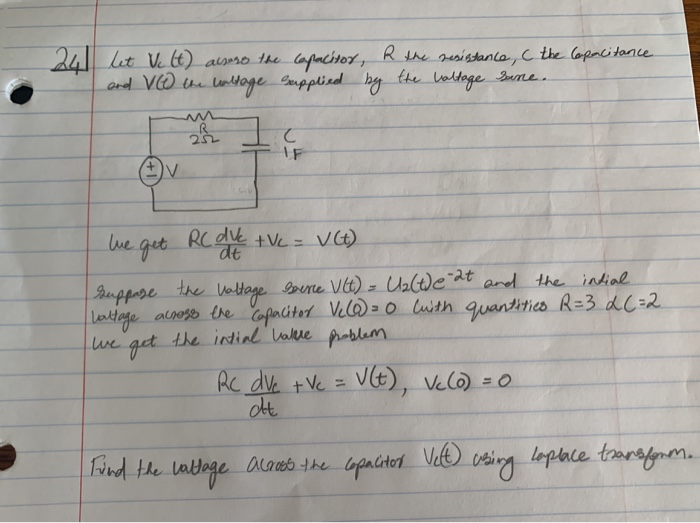 24 Let Vc (t) across the capacitor, R the resistance, C the capacitance
and V(t) the voltage supplied by the voltage
R
2Ω
C
1F
+
V
We get RC dVc/dt + Vc = V(t)
Suppose the voltage source V(t) = U2(t)e^-2t and the intial
Voltage across the capacitor Vc(0) = 0 with quantities R=3 & C=2
We get the intial value problem
RC dVc/dt + Vc = V(t), Vc(0) = 0
Find the voltage across the capacitor Vc(t) using laplace transform.